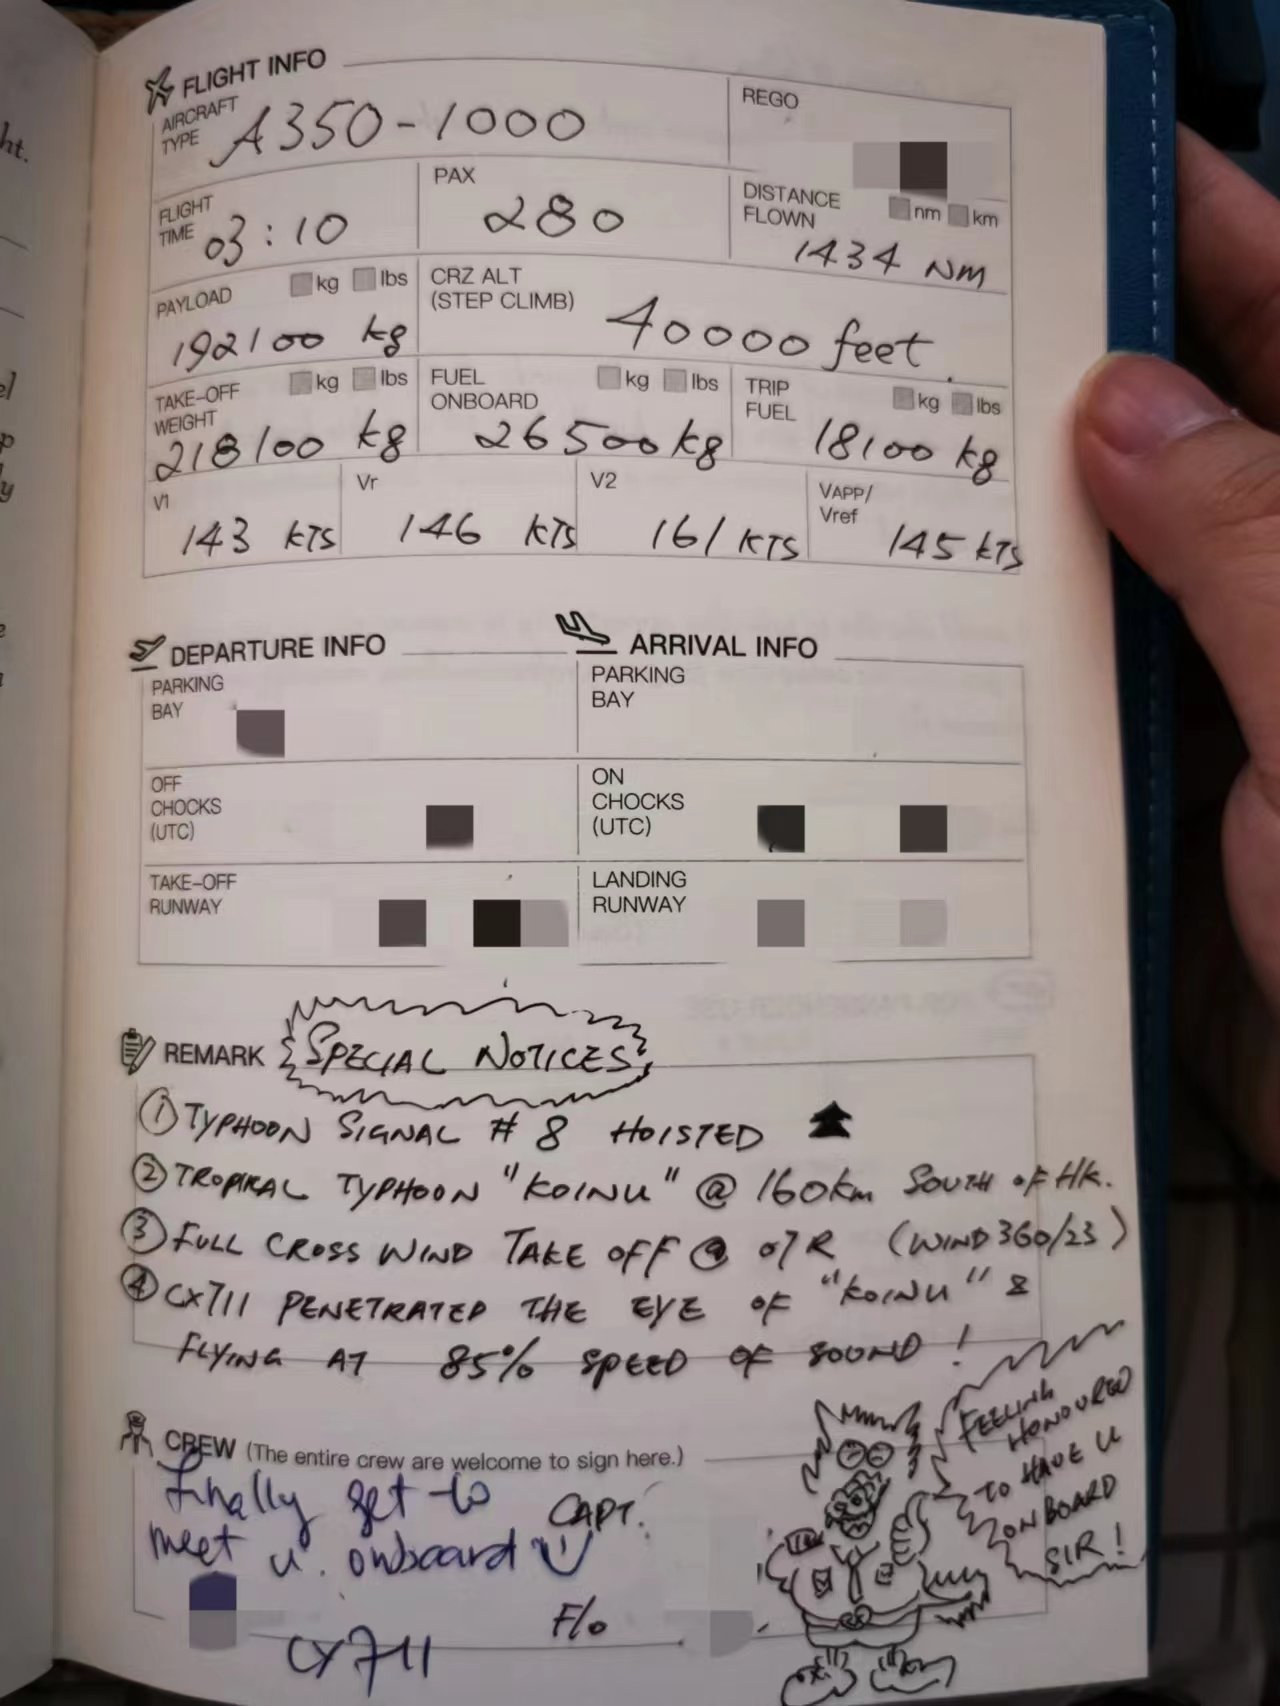 ht.
FLIGHT INFO
AIRCRAFT TYPE A350-1000
REGO
FLIGHT TIME 03:10
PAX 280
DISTANCE FLOWN nm km
1434 NM
PAYLOAD kg lbs
192100 kg
CRZ ALT (STEP CLIMB) 40000 feet.
TAKE-OFF WEIGHT kg lbs
218100 kg
FUEL ONBOARD kg lbs
26500 kg
TRIP FUEL kg lbs
18100 kg
V1 143 KTS
Vr 146 KTS
V2 161 KTS
VAPP/ Vref 145 KTS
DEPARTURE INFO
ARRIVAL INFO
PARKING BAY
PARKING BAY
OFF CHOCKS (UTC)
ON CHOCKS (UTC)
TAKE-OFF RUNWAY
LANDING RUNWAY
REMARK SPECIAL NOTICES
① TYPHOON SIGNAL # 8 HOISTED
② TROPIKAL TYPHOON "KOINU" @ 160km SOUTH OF HK.
③ FULL CROSS WIND TAKE OFF @ 07R (WIND 360/23)
④ CX711 PENETRATED THE EYE OF "KOINU" &
FLYING AT 85% SPEED OF SOUND!
CREW (The entire crew are welcome to sign here.)
Finally get to
meet u. onboard
CAPT.
F/O
CX711
FEELING
HONOURED
TO HAVE U
ONBOARD
SIR!